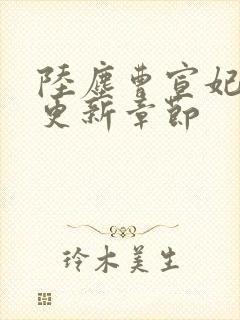 陸塵曹宣妃
更新章節
玲木美生